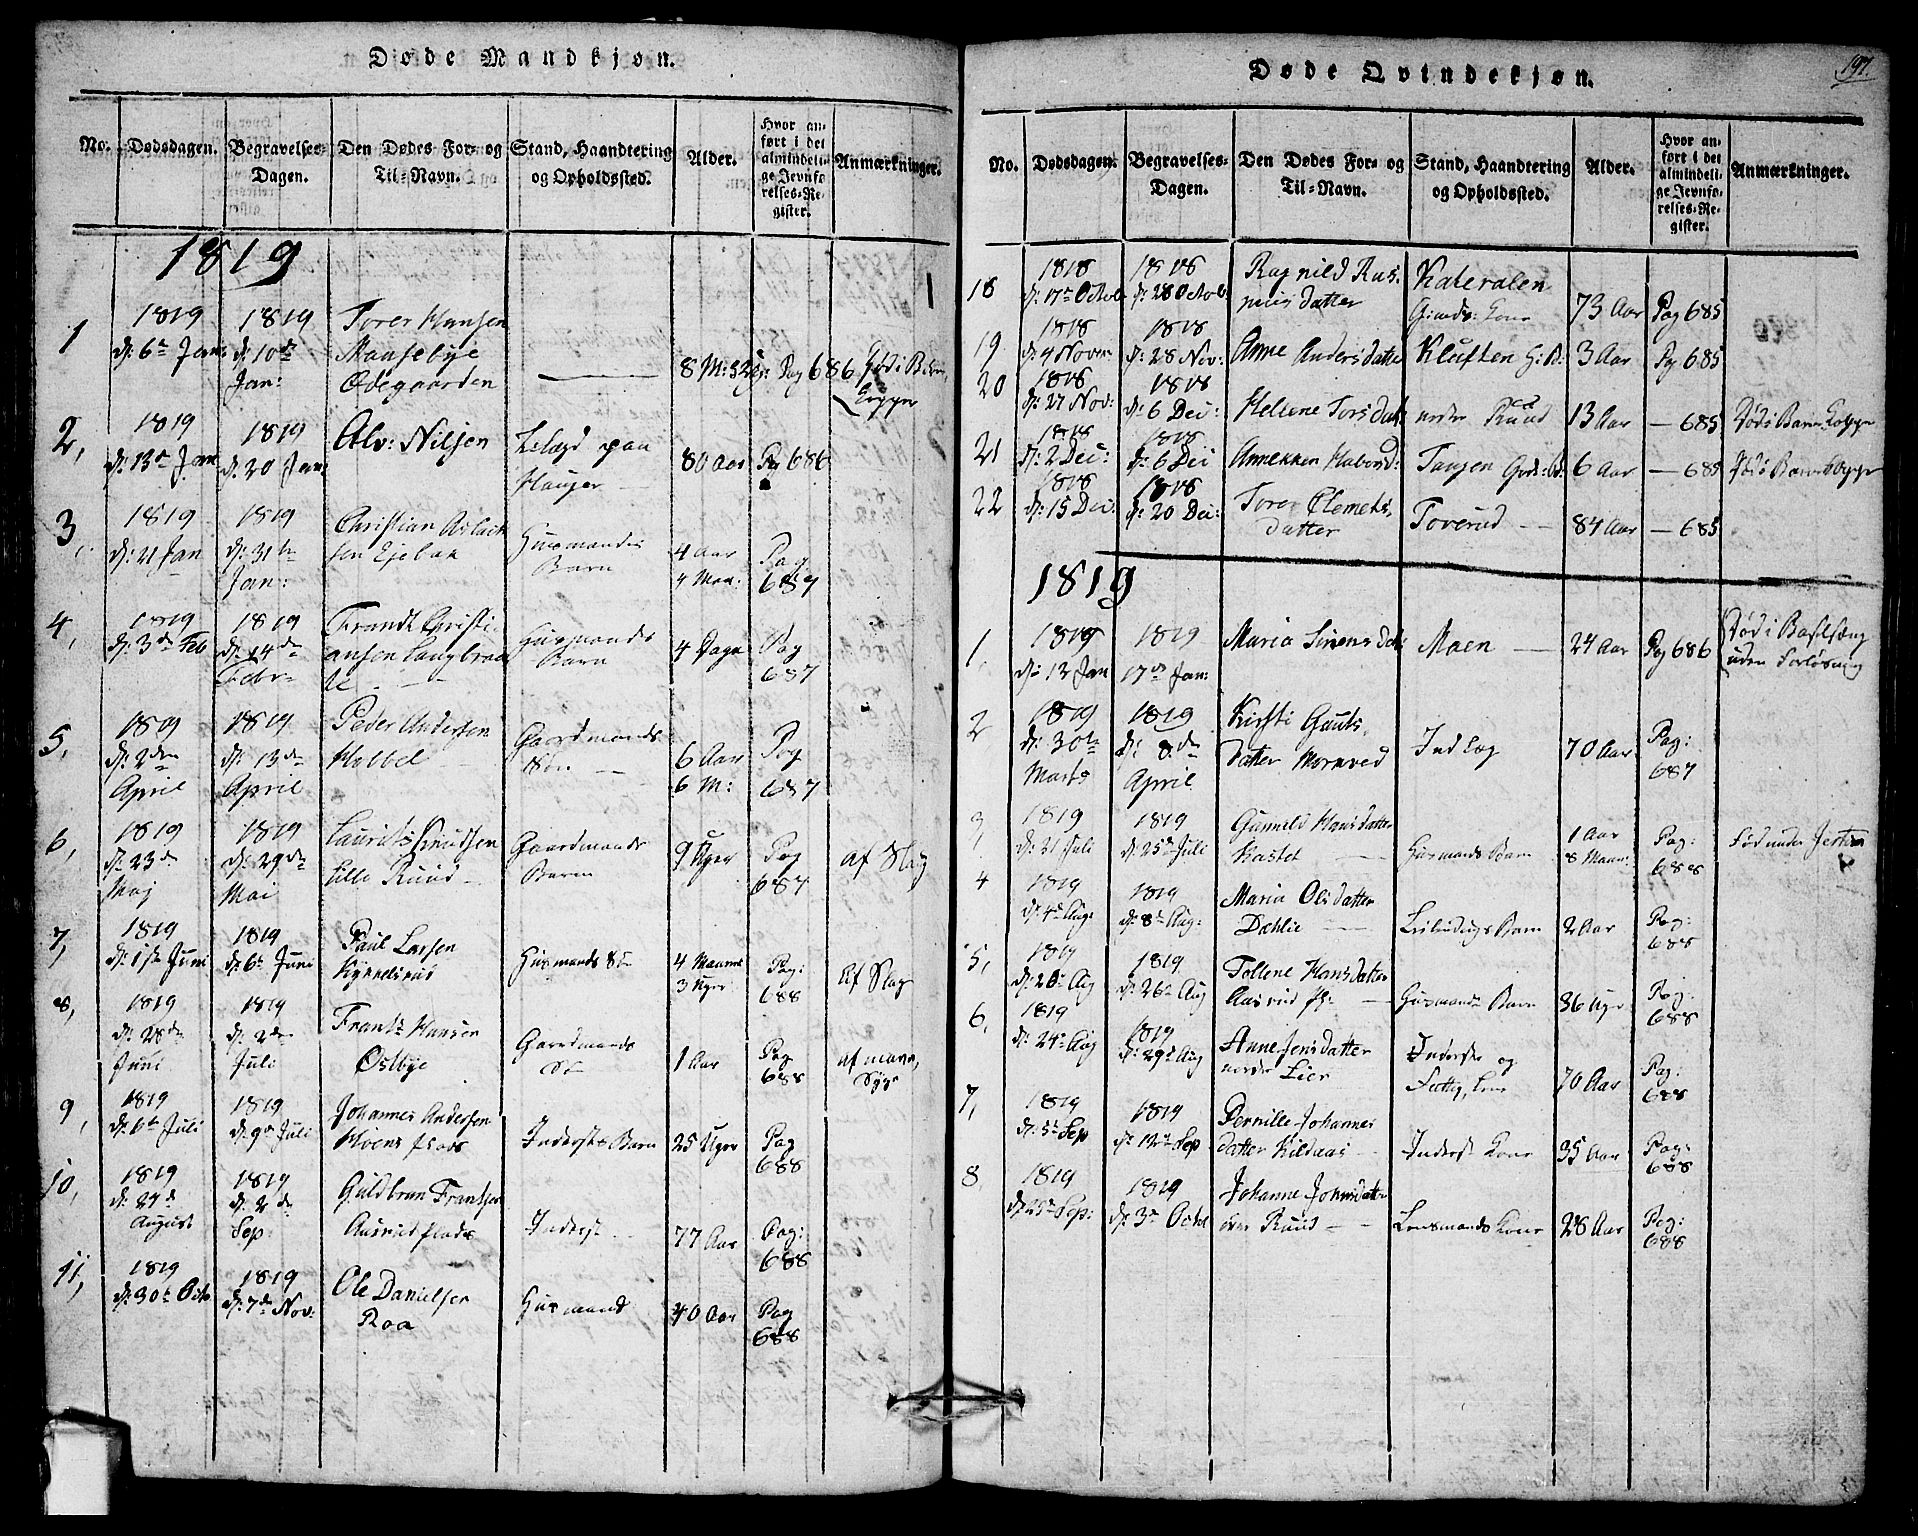 Døde Mandkjøn.
No. Dødsdagen. Begravelses-Dagen. Den Dødes For- og Til-Navn. Stand, Haandtering og Opholdssted. Alder. Hvor anført i det almindelige Jevnførelses-Register. Anmærkninger.
1819
1 1819 d: 6te Jan: 1819 d: 10de Jan: Torer Hansen
Mansebye
Ødegaarden 8 M: 3 Pag 686 Død i Børne
Kopper
2, 1819 d: 13de Jan 1819 d: 20 Jan: Alv: Nilsen paa
Hauger 80 Aar Pg 686
3, 1819 d: 21 Jan 1819 d: 31te Jan: Christian Aslack
sen Ejebak Huusmandes
Barn 4 Aar
4 Maa: Pag
687
4, 1819 d: 3de Feb 1819 d: 14de Febr Frandt Christi
ansen Langbraa
te Huusmandes
Barn 4 Dage Pag
687
5, 1809 d: 2den April 1819 d: 13de April Peder Andersen
Habbel Gaardmands
Søn 6 Aar
6 M: Pag
687
6, 1819 d: 23de Maj 1819 d: 29de Mai Laurits Knudsen
Lille Ruud Gaardmands
Barn 9 Uger Pag
687 af Slag
7, 1819 d: 1ste Juni 1819 d: 6te Juni Paul Larsen
Kykkelsrud Huusmands Sø 4 Maaned
3 Uger Pag:
688 Af Slag
8, 1819 d: 28de Juni 1819 d: 2den Juli Frantz Hansen
Østbye Gaardmands
Sø 1 Aar Pag
688 af mave,
Syge
9, 1819 d: 6te Juli 1819 d: 9de Juli Johannes Andersen Inderstes Barn 25 Uger Pag
688
10, 1819 d: 27de August 1819 d: 2de Sep: Guldbran Frantsen
Aasrud Plads Inderst 77 Aar Pag:
688
11, 1819 d: 30te Octo 1819 d: 7de Nov: Ole Danielsen
Raa Huusmand 40 Aar Pag
688
Døde Qvindekjøn.
197.
No. Dødsdagen. Begravelses-Dagen. Den Dødes For- og Til-Navn. Stand, Haandtering og Opholdssted. Alder. Hvor anført i det almindelige Jevnførelses-Register. Anmærkninger.
18 1818 d: 17de Octob 1818 d: 28 Octob: Ragnild Ras-
mus Datter Kateralen
Gmds: Kone 73 Aar Pag 685
19 1818 d: 4 Novem 1818 d: 28 Nov: Anne Anders datter Kluften H: B: 3 Aar Pg 685
20 1818 d: 27 Nov: 1818 d: 6 Dec: Hellene Tors Dat: nedre Ruud 13 Aar — 685 Død i Barne Kopper
21 1818 d: 2 Dec: 1818 d: 6 Dec Annekken Habord: Tangen 6 Aar — 685 Død i Barne kopper
22 1818 d: 15 Dec: 1818 d: 20 Dec: Torer Clemets
Datter Toverud 84 Aar — 685
1819
1. 1819 d: 13 Jan 1819 17de Jan: Maria Simens Dat: Moen 24 Aar Pag 686 Død i Barselsæng
uden Forløsning
2 1819 d: 30te Marts 1819 d: 8de April Kirsti Gauts
Datter Mornved Indlæg 70 Aar Pag:
687
3, 1819 d: 21 Juli 1819 d: 25de Juli Gunnild Hansdatter
Kastet Huusmands Barn 1 Aar
8 Maan: Pag:
688 Fød under
4 1819 d: 4de Aug: 1819 d: 8de Aug: Maria Olsdatter
Dæhlie Barn 2 Aar Pag:
688
5, 1819 d: 20: Aug 1819 d: 26te Aug Tollene Hansdatter
Aasrud Pl: Huusmands Barn 36 Uger Pag:
688
6, 1819 d: 24de Aug 1819 d: 29de Aug Anne Jensdatter
nordre Lier Inderste og
Fattig, Lem 70 Aar Pag:
688
7, 1819 d: 5te Sep 1819 d: 12te Sep Pernille Johannes
datter Kildaas Inderst Kone 35 Aar Pag:
688
8, 1819 d: 25de Sep: 1819 d: 3de Octo Johanne Johnsdatter
øvre Ruud Lensmands Kone 28 Aar Pag:
688